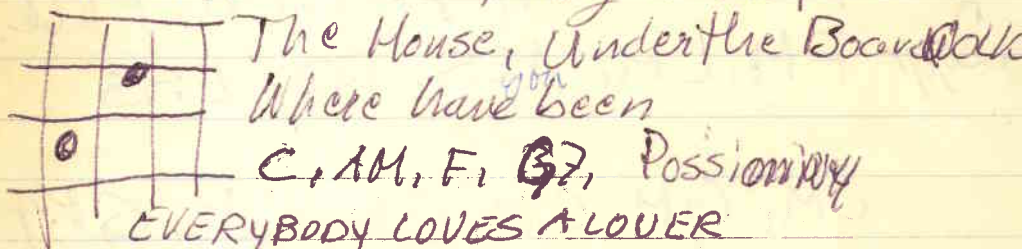 The House, Under the Boardwalk
Where have you been
C, AM, F, G7,
EVERYBODY LOVES A LOVER